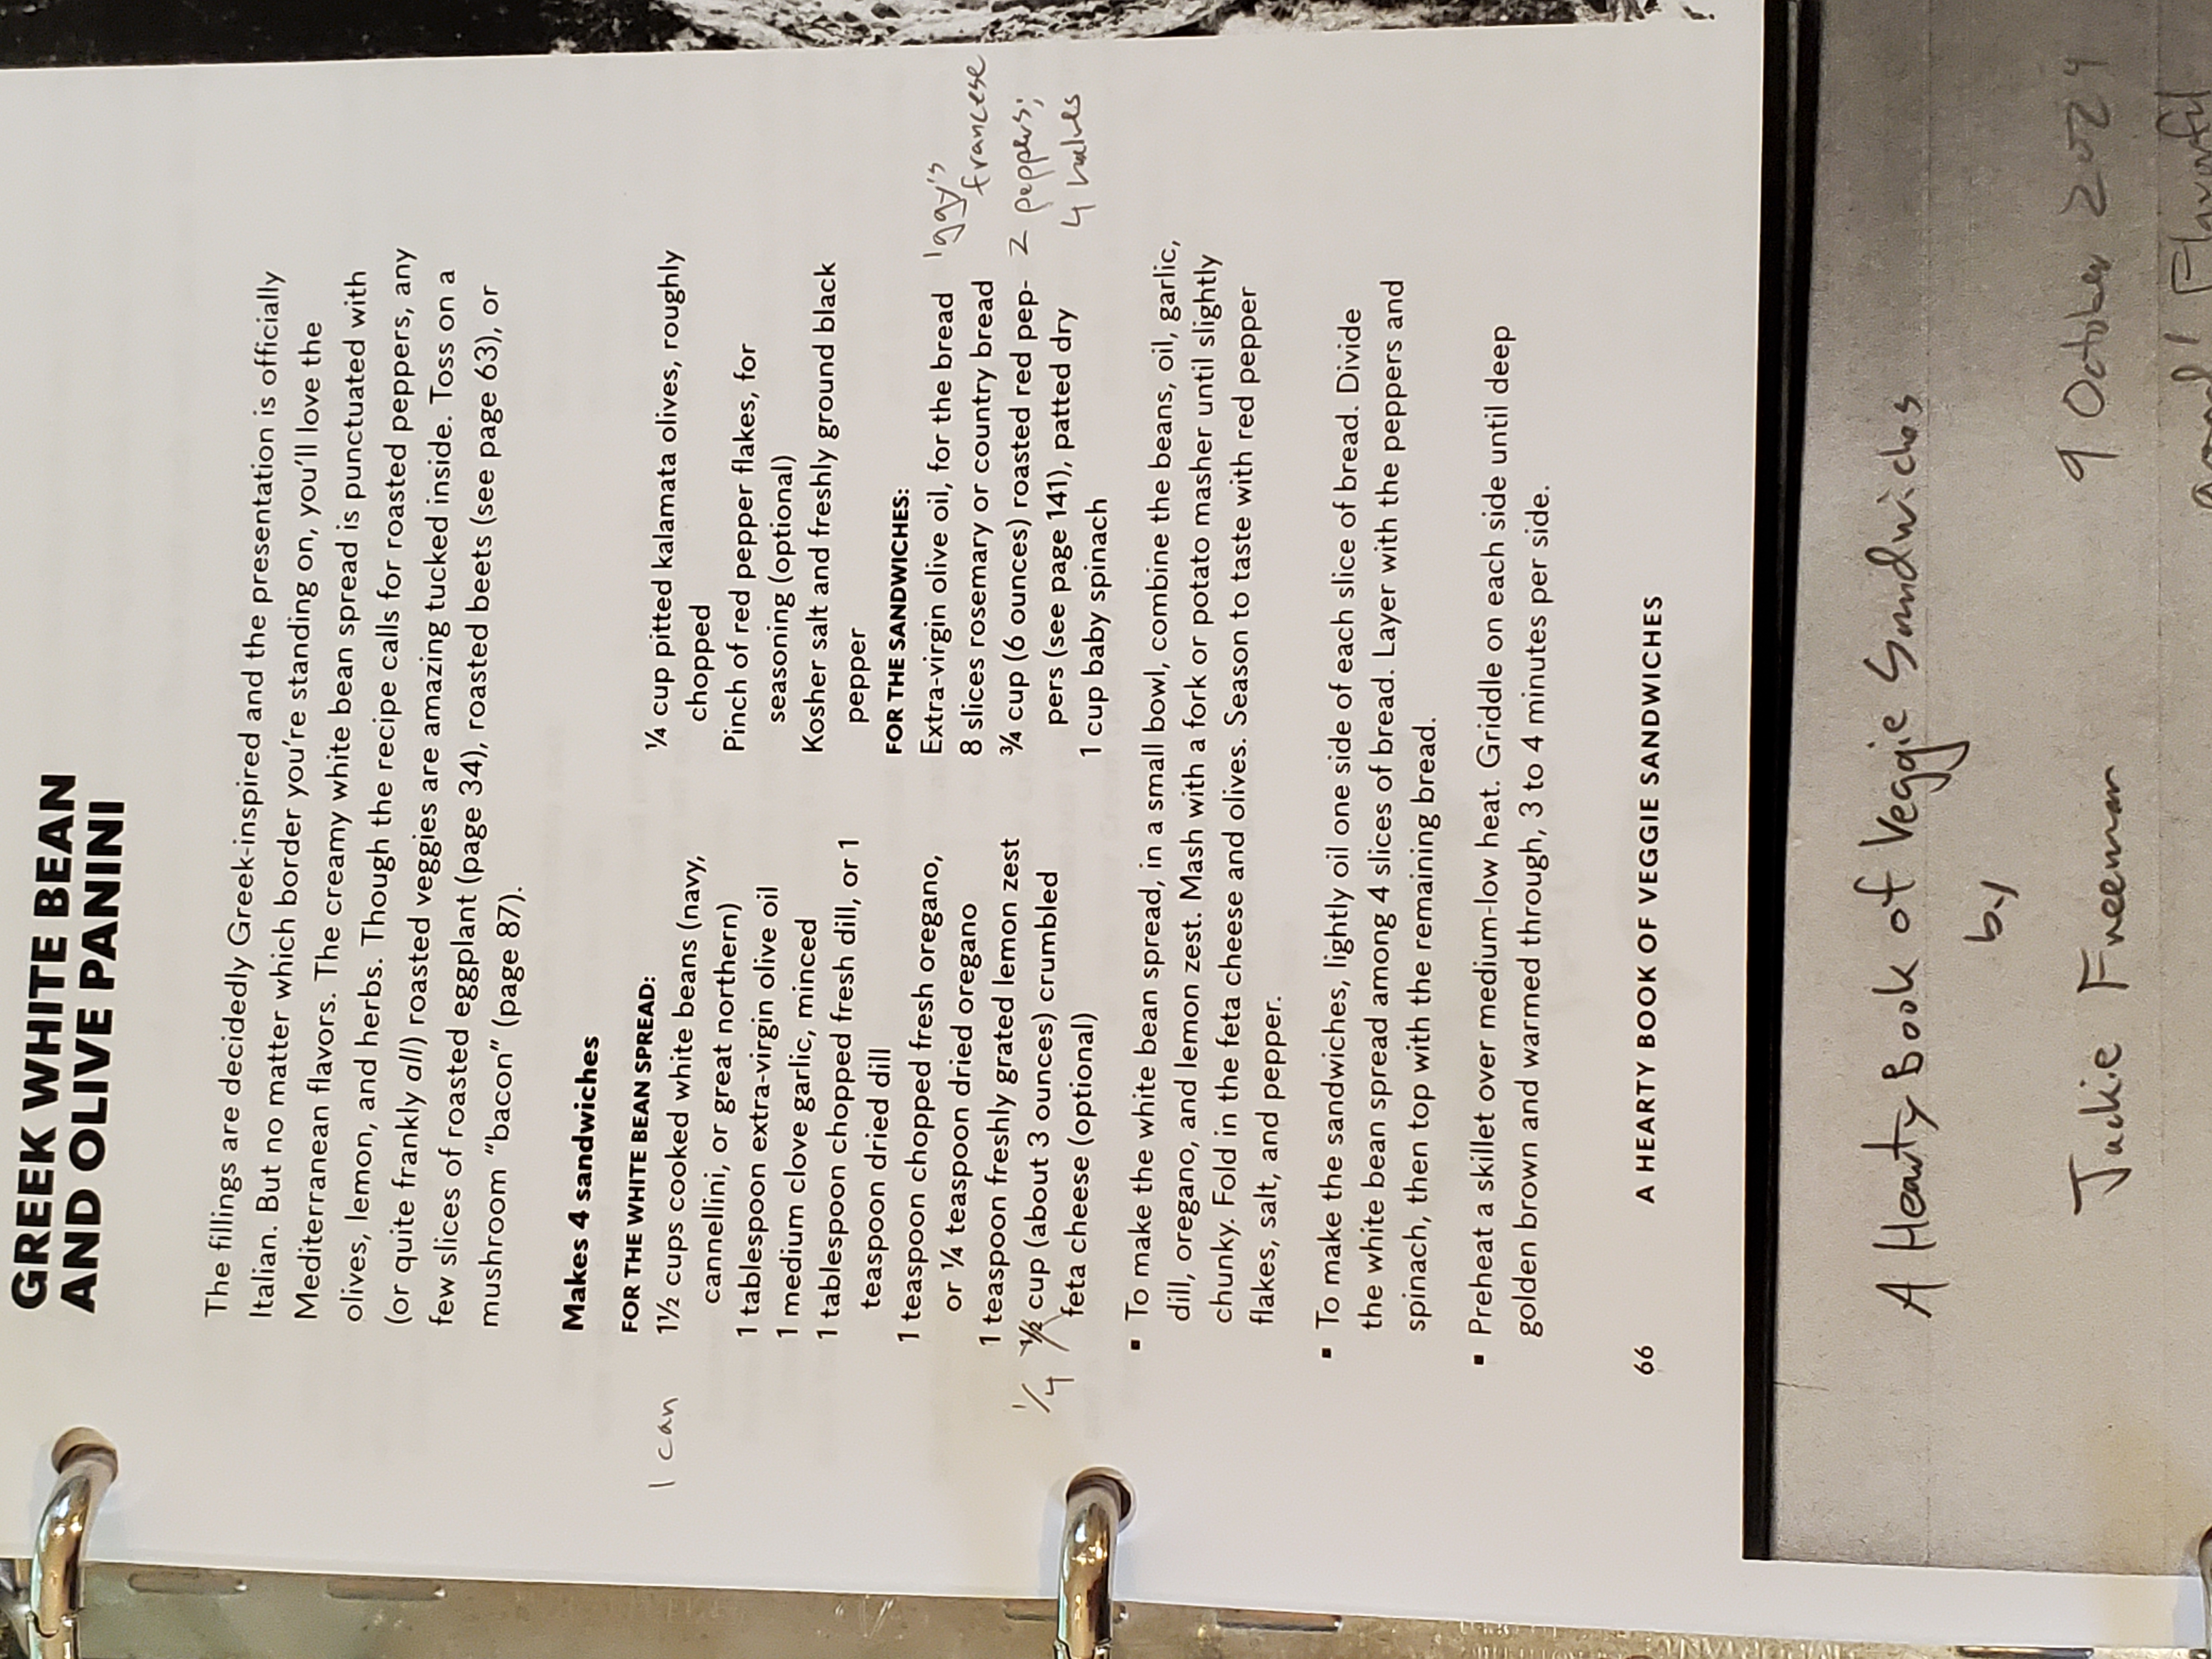 GREEK WHITE BEAN
AND OLIVE PANINI
The fillings are decidedly Greek-inspired and the presentation is officially
Italian. But no matter which border you're standing on, you'll love the
Mediterranean flavors. The creamy white bean spread is punctuated with
olives, lemon, and herbs. Though the recipe calls for roasted peppers, any
(or quite frankly all) roasted veggies are amazing tucked inside. Toss on a
few slices of roasted eggplant (page 34), roasted beets (see page 63), or
mushroom “bacon” (page 87).
Makes 4 sandwiches
FOR THE WHITE BEAN SPREAD:
1 can
1½ cups cooked white beans (navy,
cannellini, or great northern)
1 tablespoon extra-virgin olive oil
1 medium clove garlic, minced
1 tablespoon chopped fresh dill, or 1
teaspoon dried dill
1 teaspoon chopped fresh oregano,
or ¼ teaspoon dried oregano
1 teaspoon freshly grated lemon zest
1/4
½ cup (about 3 ounces) crumbled
feta cheese (optional)
¼ cup pitted kalamata olives, roughly
chopped
Pinch of red pepper flakes, for
seasoning (optional)
Kosher salt and freshly ground black
pepper
FOR THE SANDWICHES:
Extra-virgin olive oil, for the bread
8 slices rosemary or country bread
Iggy's
francese
¾ cup (6 ounces) roasted red pep-
pers (see page 141), patted dry
2 peppers;
4 halves
1 cup baby spinach
▪ To make the white bean spread, in a small bowl, combine the beans, oil, garlic,
dill, oregano, and lemon zest. Mash with a fork or potato masher until slightly
chunky. Fold in the feta cheese and olives. Season to taste with red pepper
flakes, salt, and pepper.
▪ To make the sandwiches, lightly oil one side of each slice of bread. Divide
the white bean spread among 4 slices of bread. Layer with the peppers and
spinach, then top with the remaining bread.
▪ Preheat a skillet over medium-low heat. Griddle on each side until deep
golden brown and warmed through, 3 to 4 minutes per side.
66 A HEARTY BOOK OF VEGGIE SANDWICHES
A Hearty Book of Veggie Sandwiches
by
Jackie Freeman
9 October 2024
Good! Flavorful